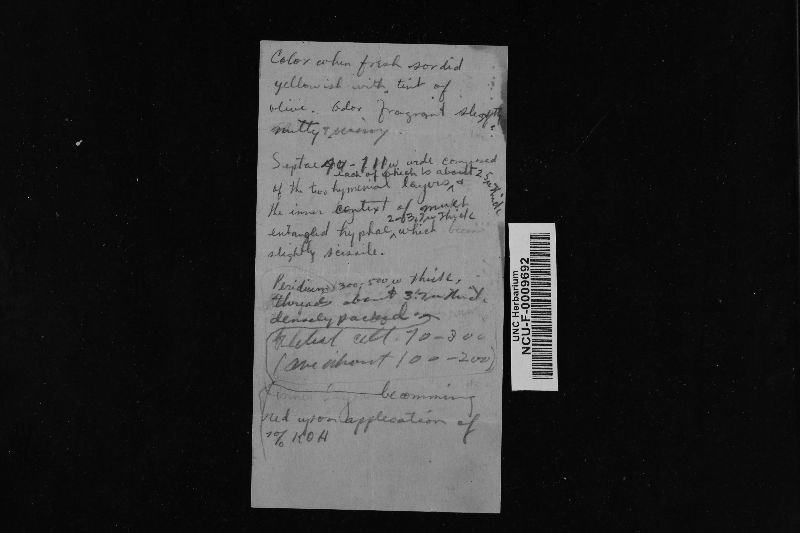 Color when fresh sordid
yellowish with tint of
olive. Odor fragrant slightly
nutty &
Septae 44-111 u wide composed
of the two hymenial layers, each of which is about 25 u thick &
the inner context of much
entangled hyphae, 2-3.7 u thick which
slightly scissile.
Peridium 300-500 u thick,
threads about 3.7 u thick,
densely packed
Glebal cell. 70-300
(ave about 100-200)
becomming
red upon application of
10% KOH
UNC Herbarium
NCU-F-0009692